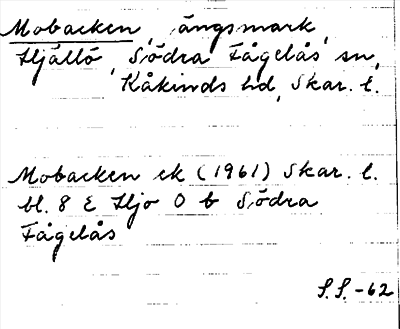 Mobacken, ängsmark,
Hjällö, Södra Fågelås sn,
Kåkinds hd, Skar. l.
Mobacken ek (1961) Skar. l.
bl. 8 E Hjo 0 b Södra
Fågelås
S.S.-62